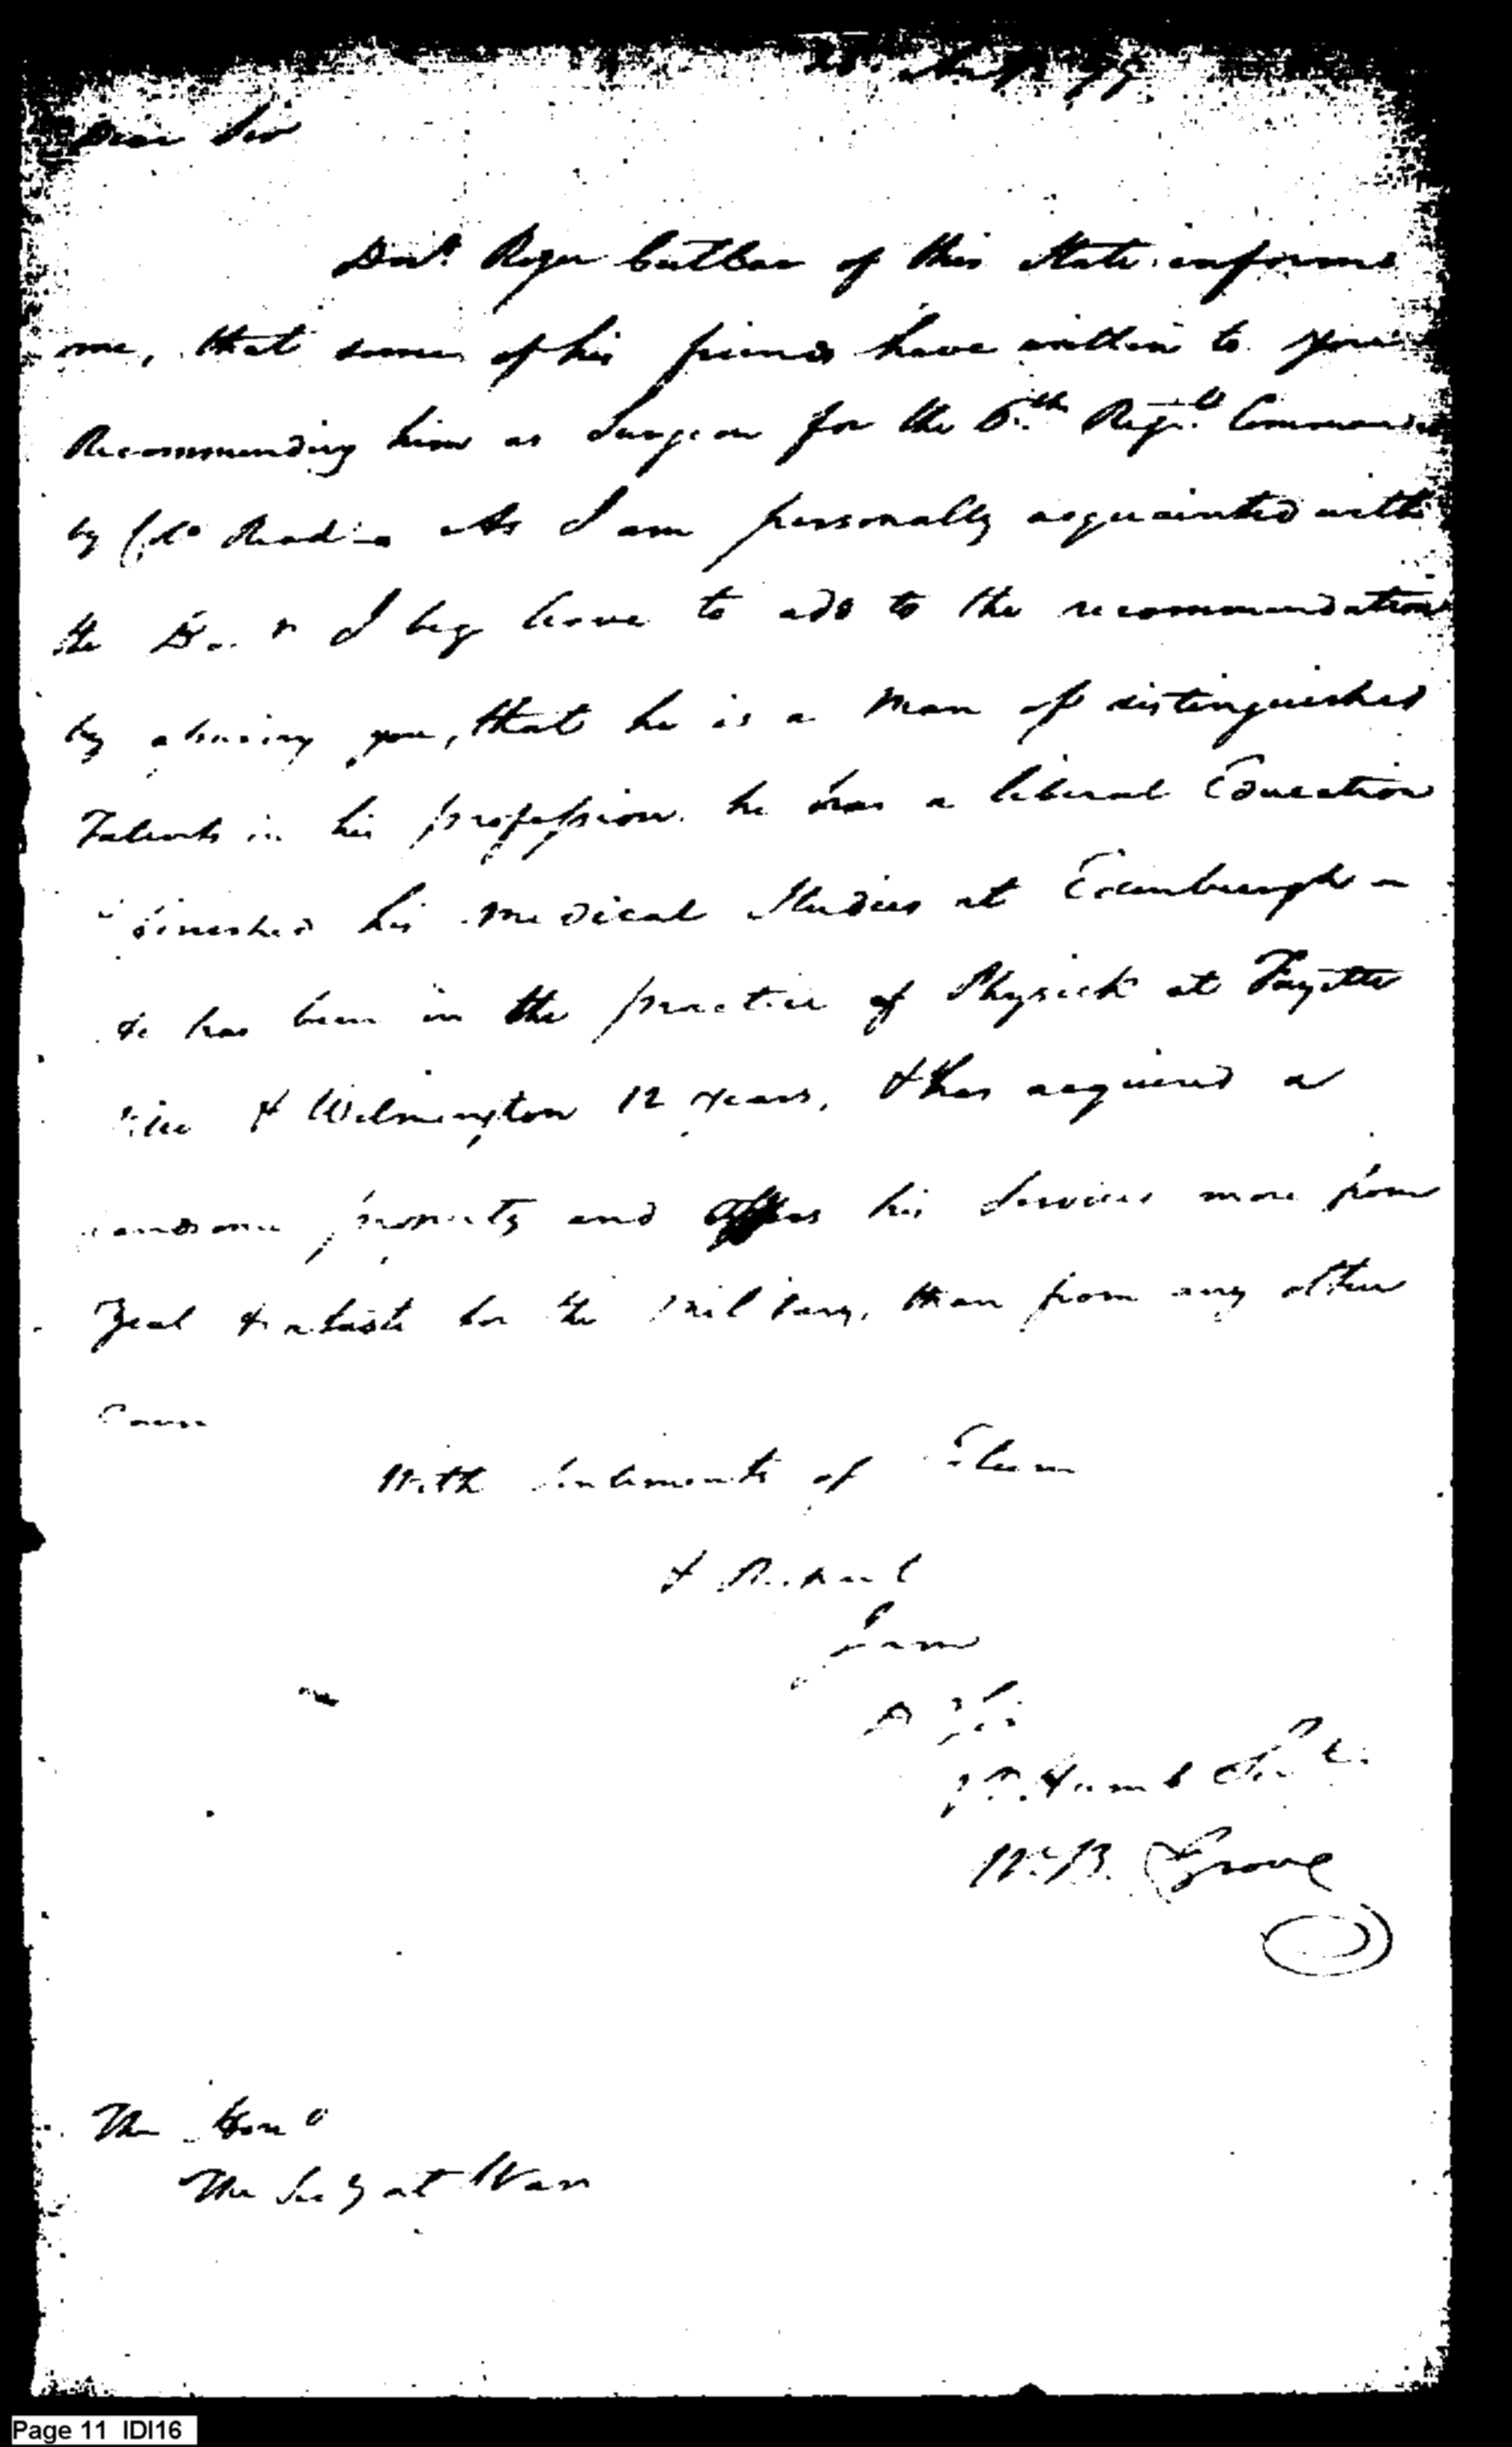 Dear Sir
Doct. Roger Cutlar of this State informs
me, that some of his friends have written to you
Recommending him as Surgeon for the 6.th Regt. Commanded
by Colo Read – As I am personally acquainted with
the Dr. I beg leave to add to the recommendation
by assuring you, that he is a Man of distinguished
Talents in his profession. he has a liberal Education
finished his medical Studies at Edinburgh –
he has been in the practice of Physick at Fayette
ville & Wilmington 12 years, & has acquired a
handsome property and offers his Services more from
Zeal & a taste for the Military, than from any other
Cause
With Sentiments of Esteem
& Respect
I am
D Sir
Yr. Humb Servt.
W. B. Grove
The Honо
The Secy at War
Page 11 IDI16